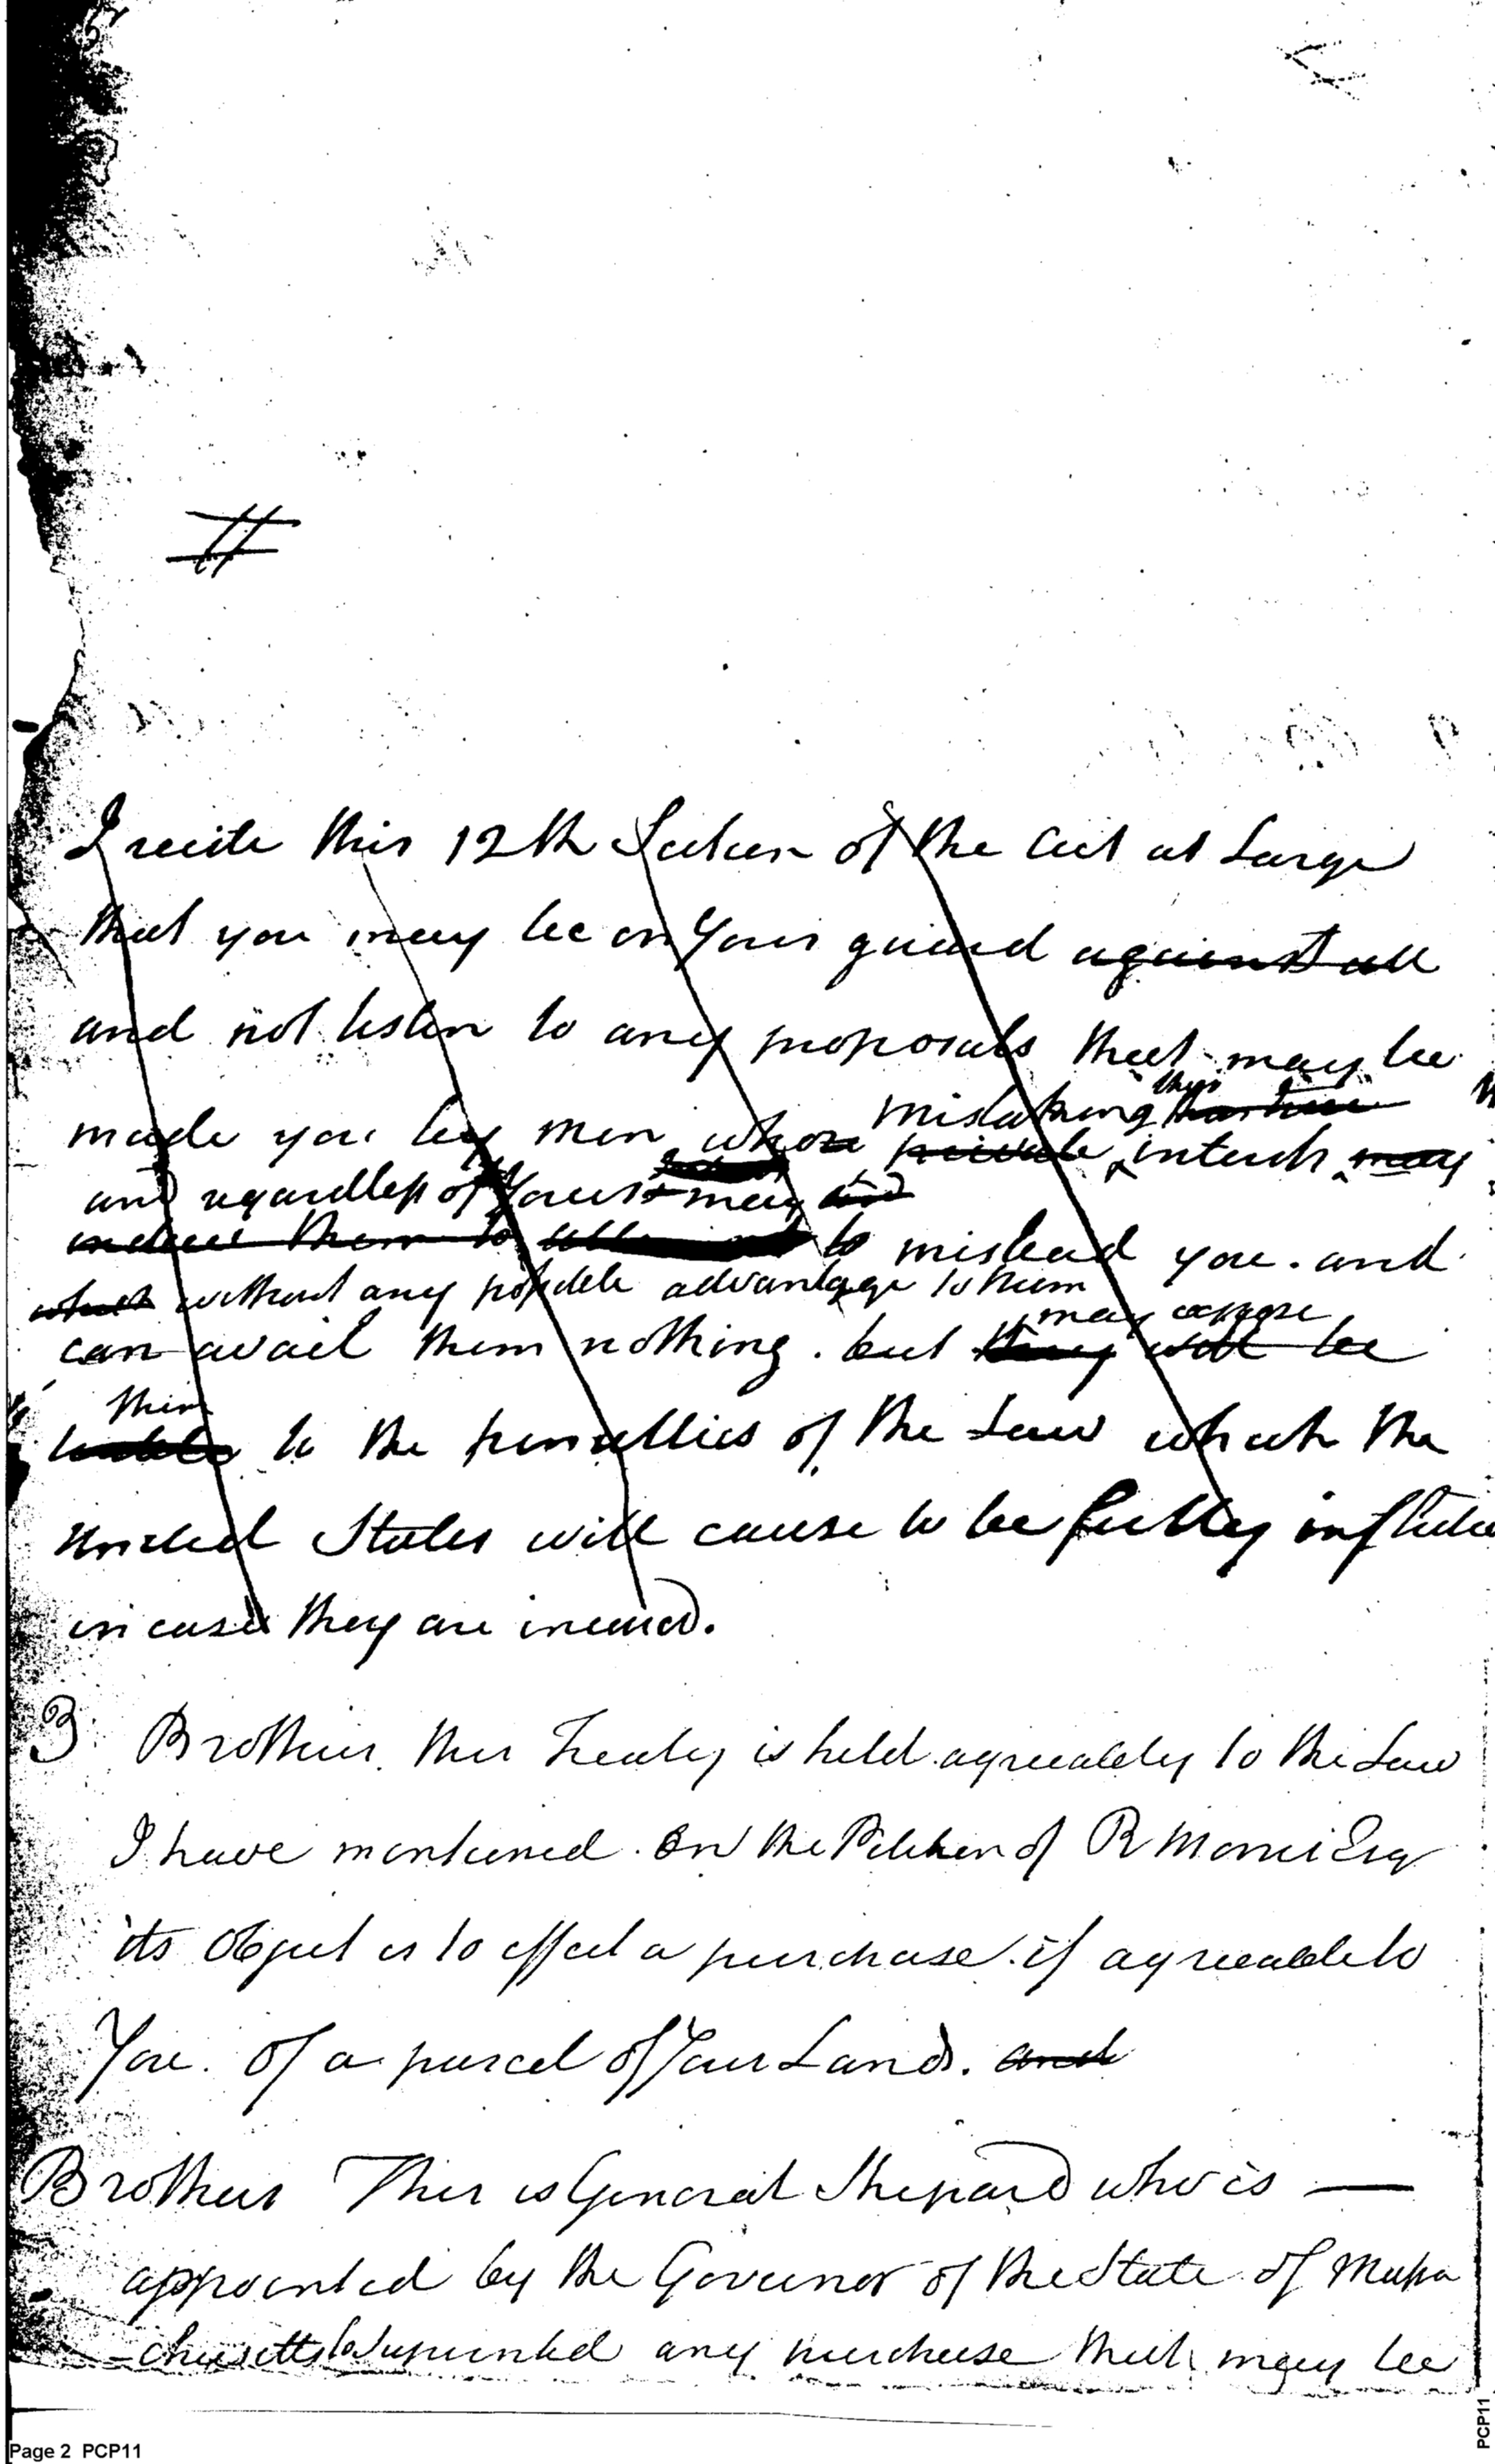 #
I recite this 12th Section of the Act at Large
that you may be on Your guard against all
and not listen to any proposals that may be
mistaking their
made you by men whose private interests may
and regardless of Yours may and
induce them to to mislead you. and
which without any possible advantage to them
may expose
can avail them nothing. but they will be
them
liable to the penalties of the Law which the
United States will cause to be fully inflicted
in case they are incurred.
3. Brothers. this Treaty is held agreeably to the Law
I have mentioned. On the Petition of R Morris Esq
its Object is to effect a purchase. if agreeable to
You. Of a parcel of Your Lands. and
Brothers This is General Shepard who is —
appointed by the Governor of the State of Massa
chusetts to Superintend any purchase that may be
Page 2 PCP11
PCP11